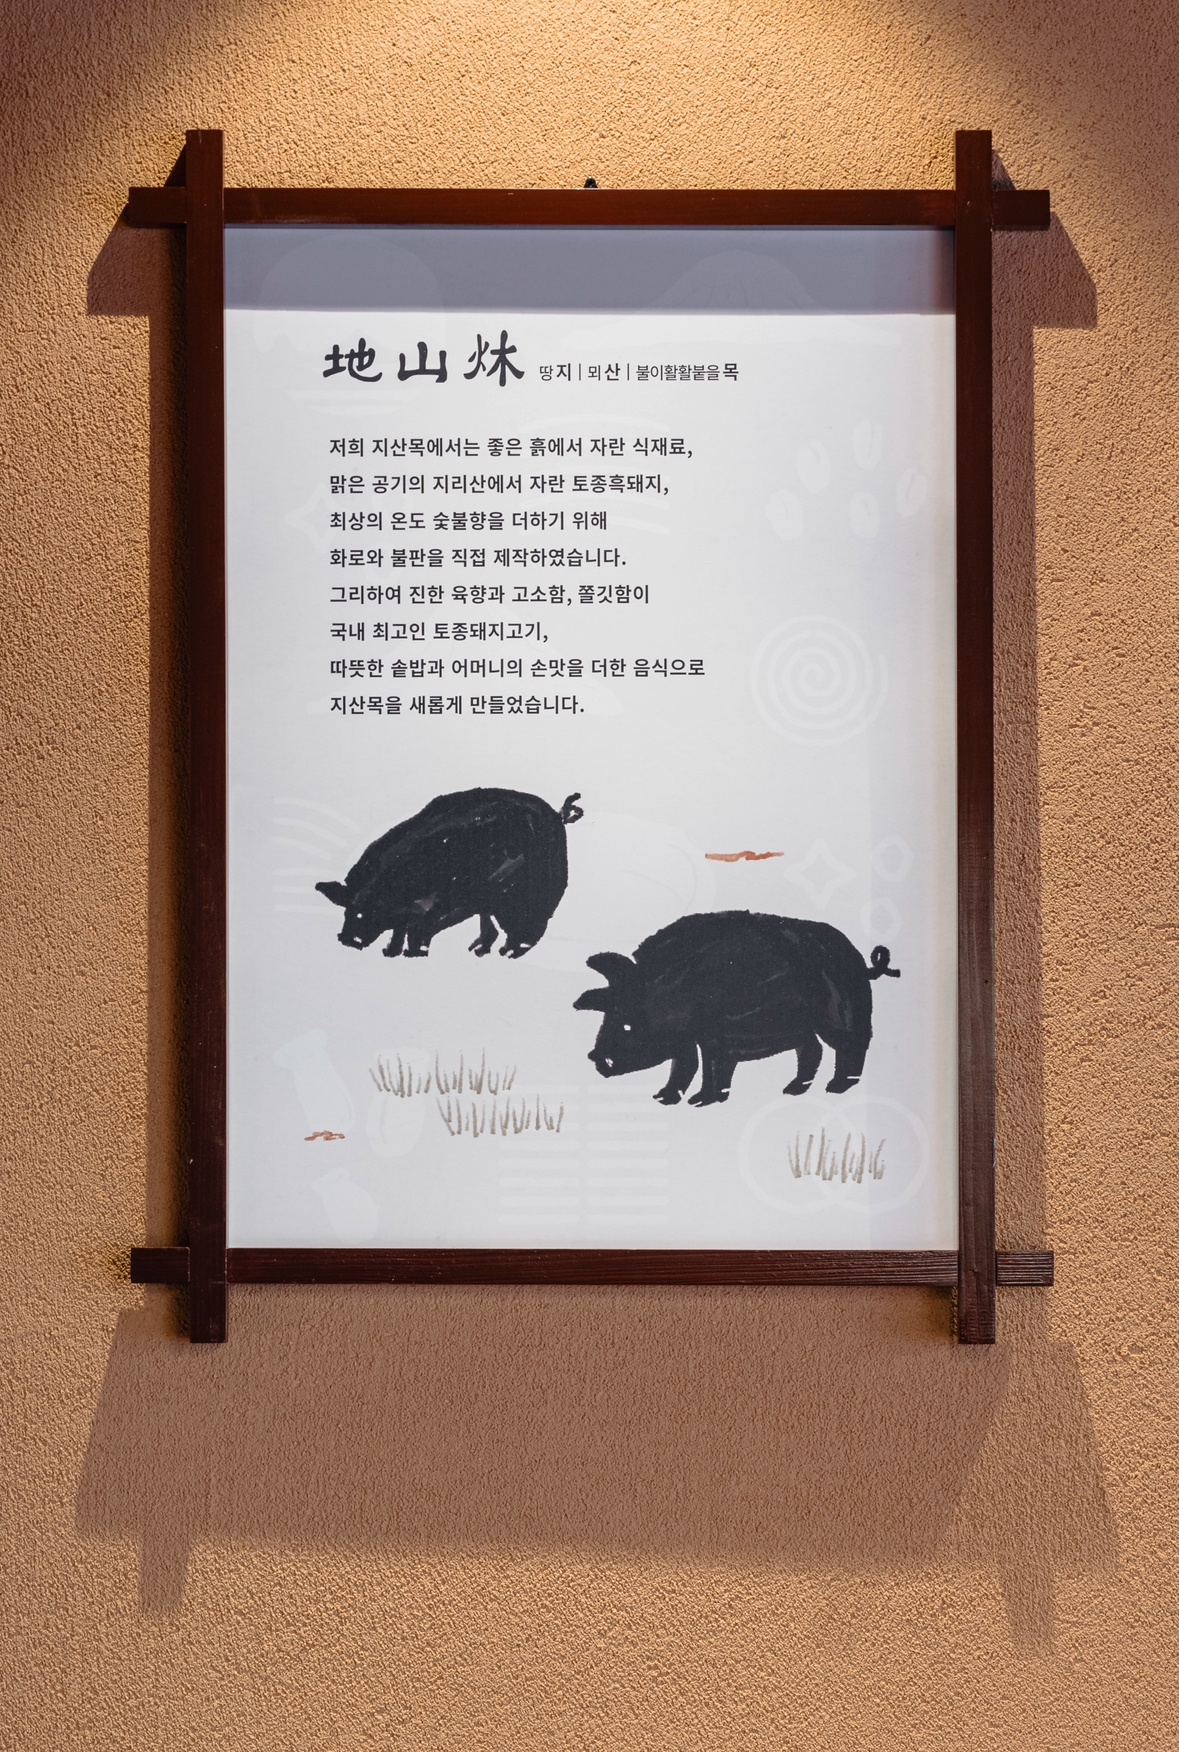 地山炑 땅지 | 뫼산 | 불이활활붙을목
저희 지산목에서는 좋은 흙에서 자란 식재료,
맑은 공기의 지리산에서 자란 토종흑돼지,
최상의 온도 숯불향을 더하기 위해
화로와 불판을 직접 제작하였습니다.
그리하여 진한 육향과 고소함, 쫄깃함이
국내 최고인 토종돼지고기,
따뜻한 솥밥과 어머니의 손맛을 더한 음식으로
지산목을 새롭게 만들었습니다.